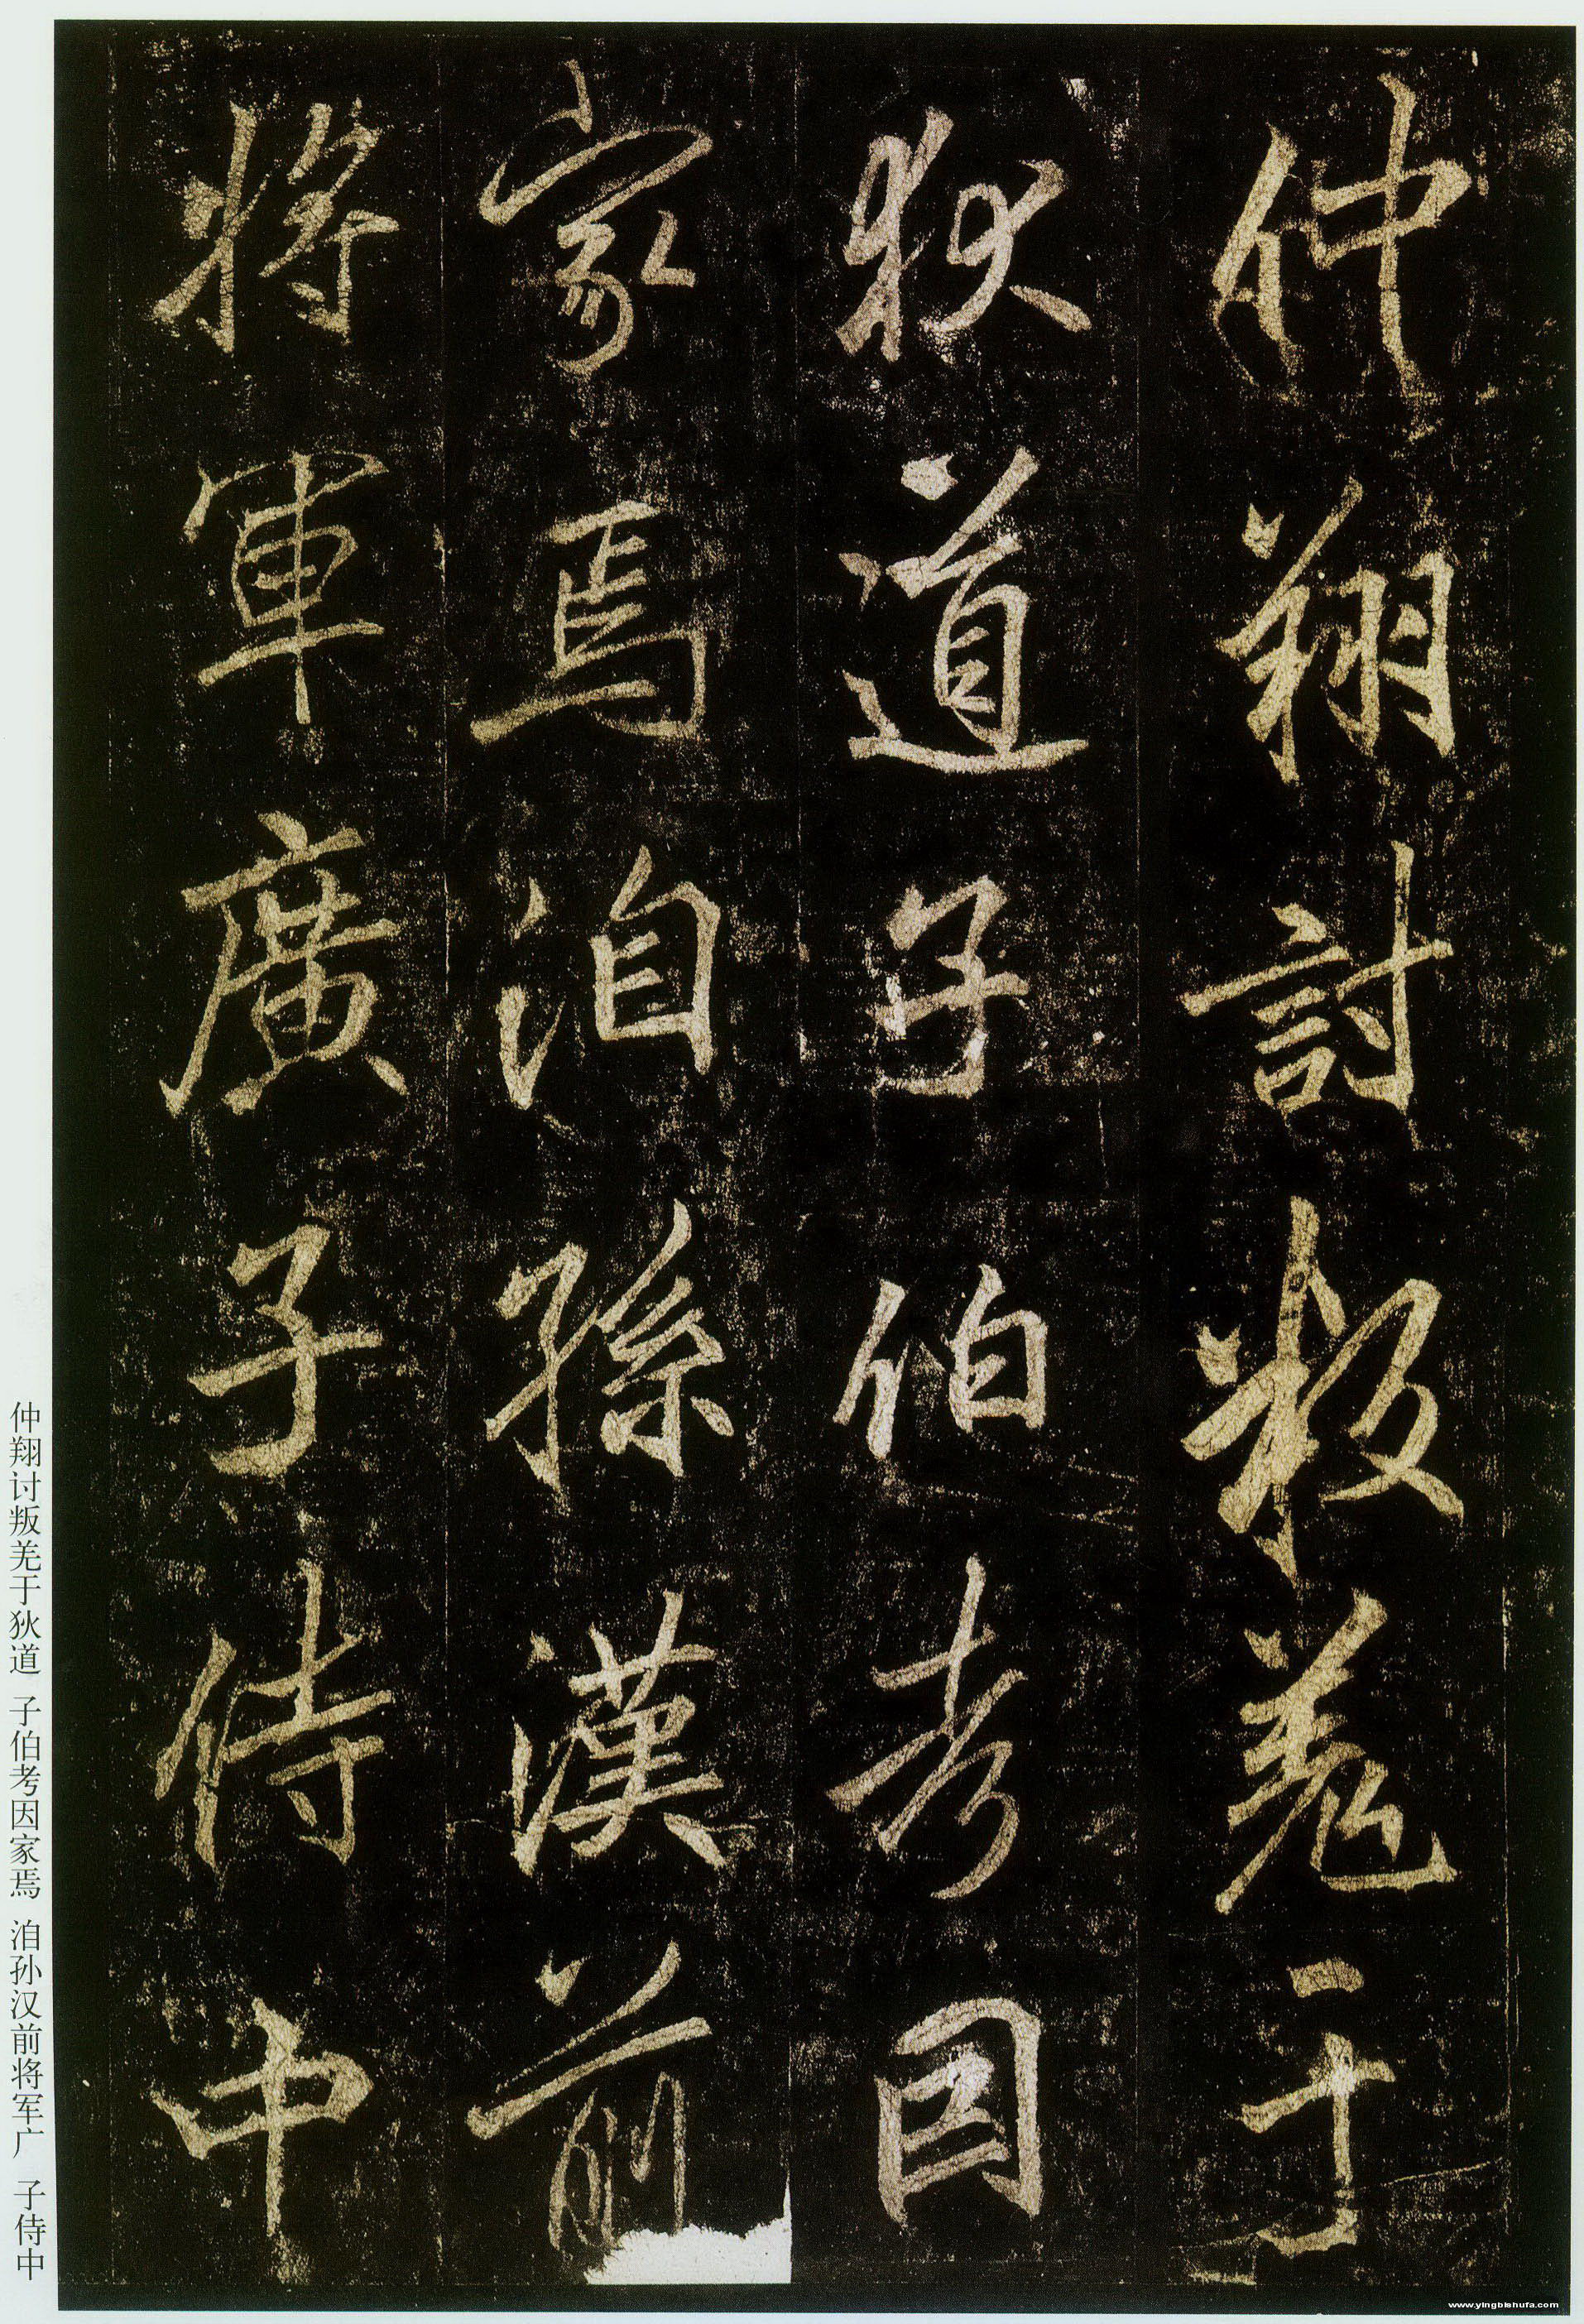 仲翔討叛羌于
狄道子伯考因
家焉洎孫漢前
將軍廣子侍中
仲翔讨叛羌于狄道 子伯考因家焉 洎孙汉前将军广 子侍中
www.yingbishufa.com